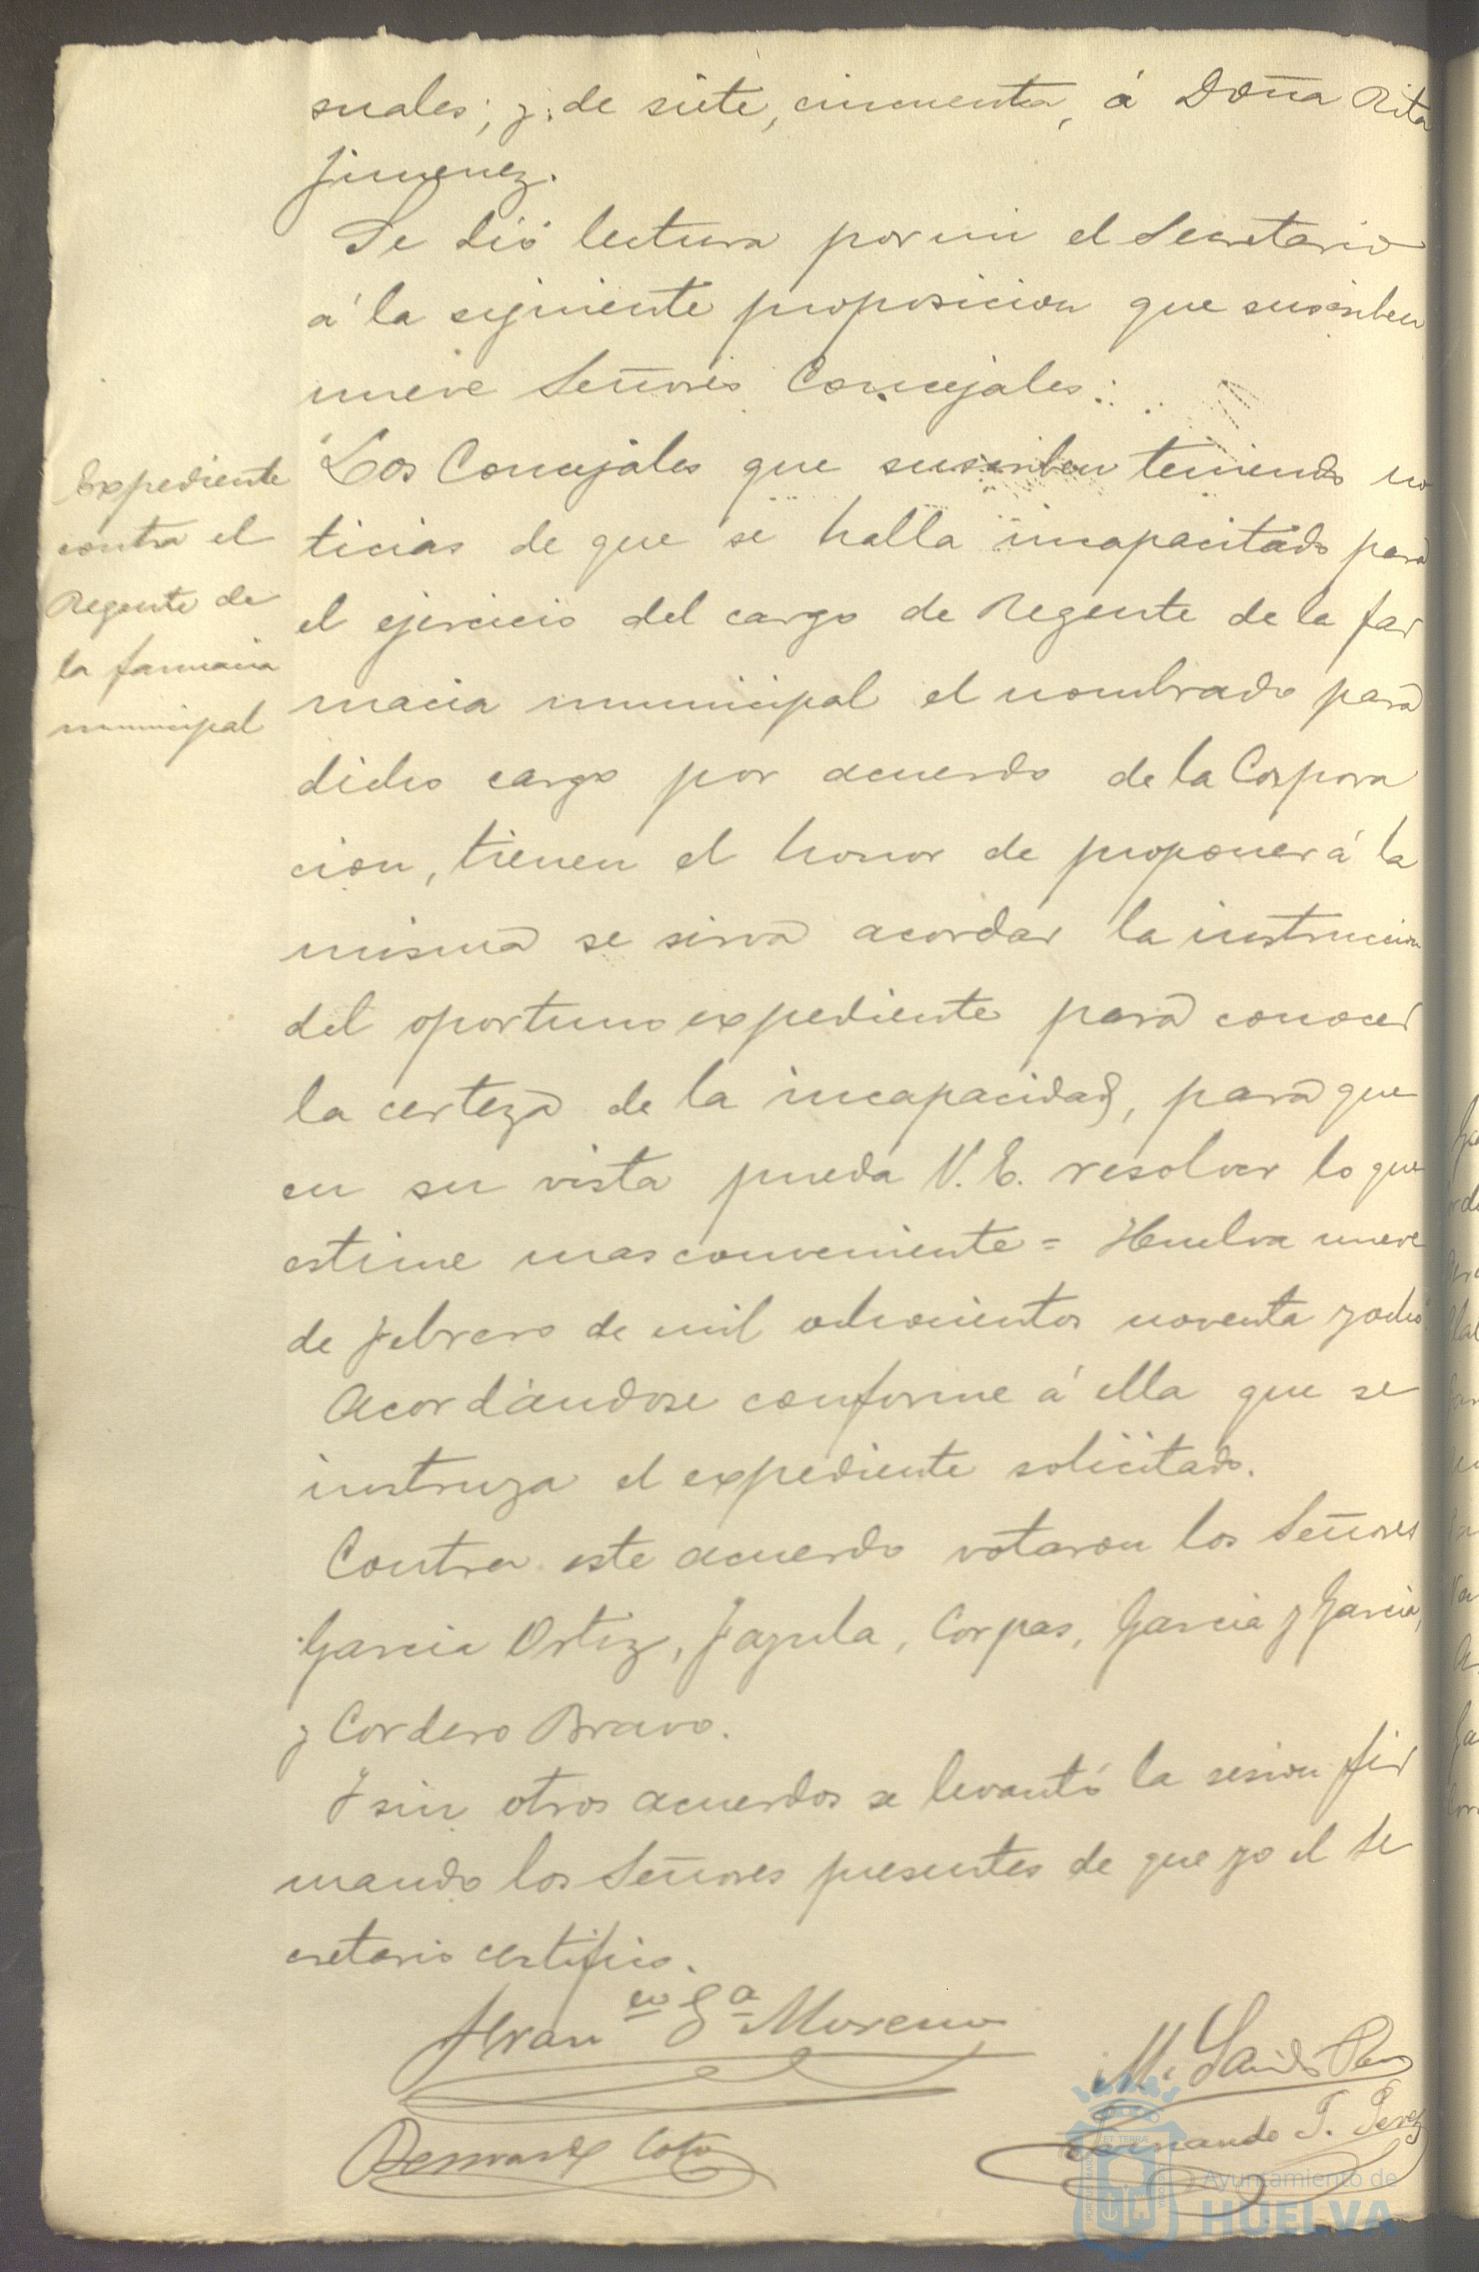 suales; y, de siete, cincuenta, á Doña Rita
Jimenez.
Se dió lectura por mi el Secretario
á la siguiente proposicion que suscriben
nueve Señores Concejales:
Expediente
contra el
Regente de
la farmacia
municipal
Los Concejales que suscriben teniendo no
ticias de que se halla incapacitado para
el ejercicio del cargo de Regente de la far
macia municipal el nombrado para
dicho cargo por acuerdo de la Corpora
cion, tienen el honor de proponer á la
misma se sirva acordar la instruccion
del oportuno expediente para conocer
la certeza de la incapacidad, para que
en su vista pueda V. E. resolver lo que
estime mas conveniente = Huelva nueve
de febrero de mil ochocientos noventa y ocho
Acordándose conforme á ella que se
instruya el expediente solicitado.
Contra este acuerdo votaron los Señores
Garcia Ortiz, Jazula, Corpas, Garcia y Garcia,
y Cordero Bravo.
Y sin otros acuerdos se levantó la sesion fir
mando los Señores presentes de que yo el Se
cretario certifico.
Fran<sup>co</sup> G<sup>a</sup> Moreno
M.
Bernardo Coto
Fernando T. Perez
Ayuntamiento de
HUELVA